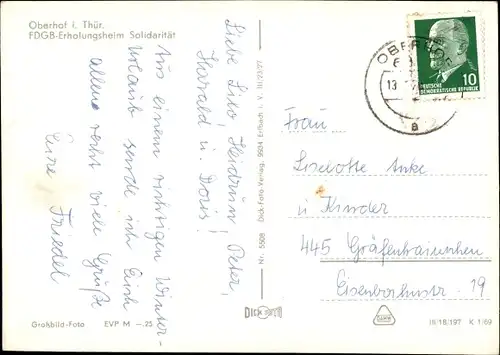 Oberhof i. Thür.
FDGB-Erholungsheim Solidarität
Liebe Lilo, Heidrun, Peter,
Harald u. Doris!
Aus einem richtigen Winter-
urlaub sende ich Euch
allen recht viele Grüße
Eure Friedel
Großbild-Foto EVP M -.25
Nr. 5508 Dick-Foto-Verlag, 9934 Erlbach i. V. III/23/77
DICK FOTO
OBERHOF
13.
a
10
DEUTSCHE
DEMOKRATISCHE REPUBLIK
Frau
Liselotte Anke
u Kinder
445 Gräfenhainichen
Eisenbahnstr. 19
III/18/197 K 1/69